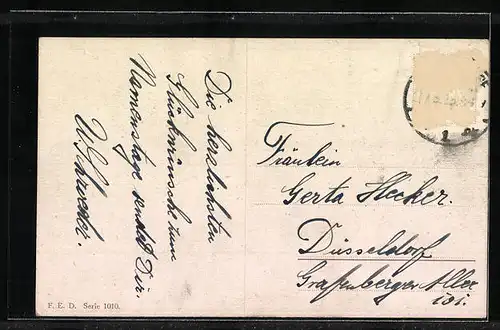 Die herzlichsten
Glückwünsche zum
Namenstage sendet Dir.
Fräulein
Gerta Hecker.
Düsseldorf
Grafenberger Allee
101.
F. E. D. Serie 1010.